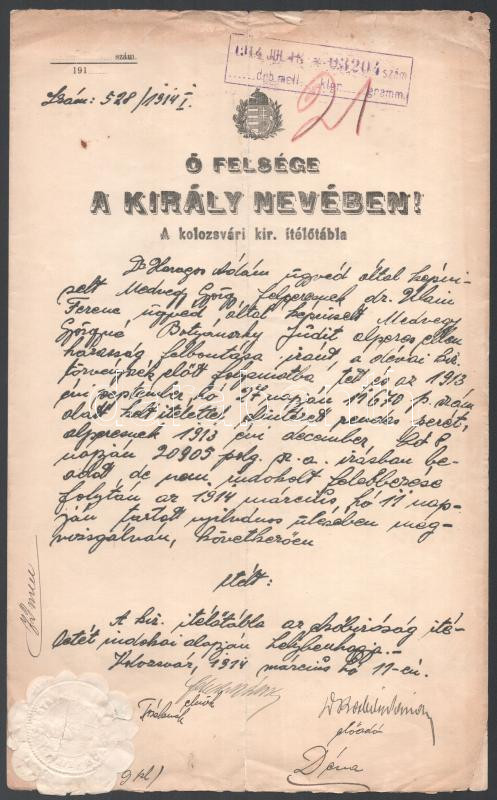 szám.
191
Szám: 528/1914 I.
1914 JUL 18 93204 szám
drb mell. klgr. gramm.
21
Ő FELSÉGE
A KIRÁLY NEVÉBEN!
A kolozsvári kir. ítélőtábla
Dr Haragos Ádám ügyvéd által képvi-
selt Medvegy György felperesnek dr.
Ferenc ügyvéd által képviselt Medvegy
Györgyné Botyánszky Judit alperes ellen
házasság felbontása iránt, a dévai kir.
törvényszék előtt folyamatba tett és az 1913
évi september hó 27 napján p. szám
alatt kelt ítélettel elintézett rendes perét,
alperesnek 1913 évi december hó 8
napján 20905 sz. a. írásban be-
adott de nem indokolt felebbezése
folytán az 1914 március hó 11 nap-
ján tartott nyilvános ülésében meg-
vizsgálván, következően
ítélt:
A kir. ítélőtábla az elsőbíróság íté-
letét indokai alapján helybenhagyja.
Kolozsvár, 1914 március hó 11-én.
elnök
előadó
Déva